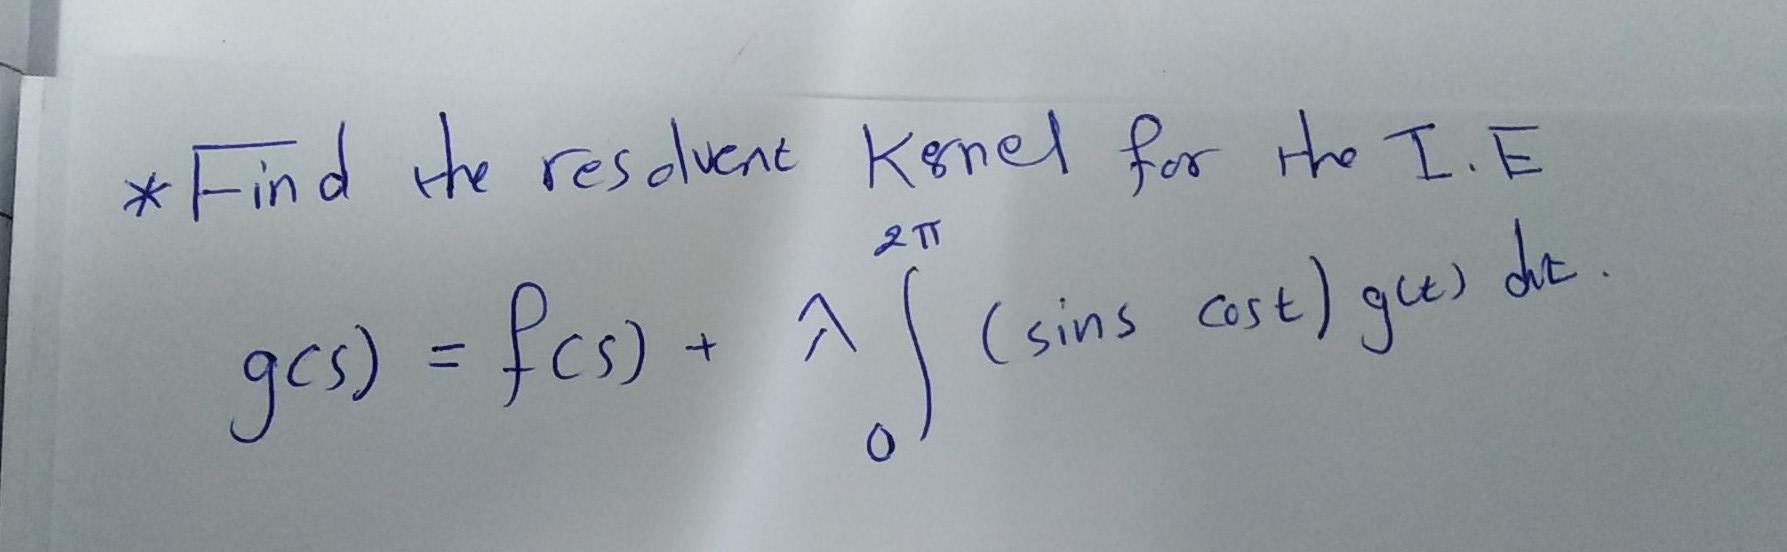 * Find the resolvent Kernel for the I.E
g(s) = f(s) + λ ∫₀^2π (sins cost) g(t) dt.